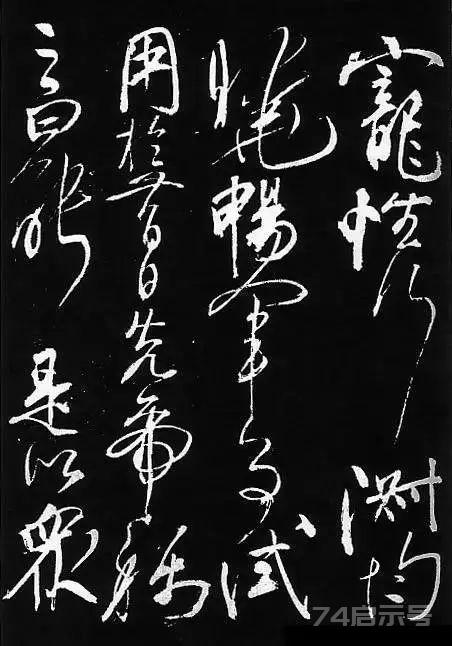 寵性行淑均
曉暢軍事試
用於昔日先帝稱
之曰能是以衆
74启示号